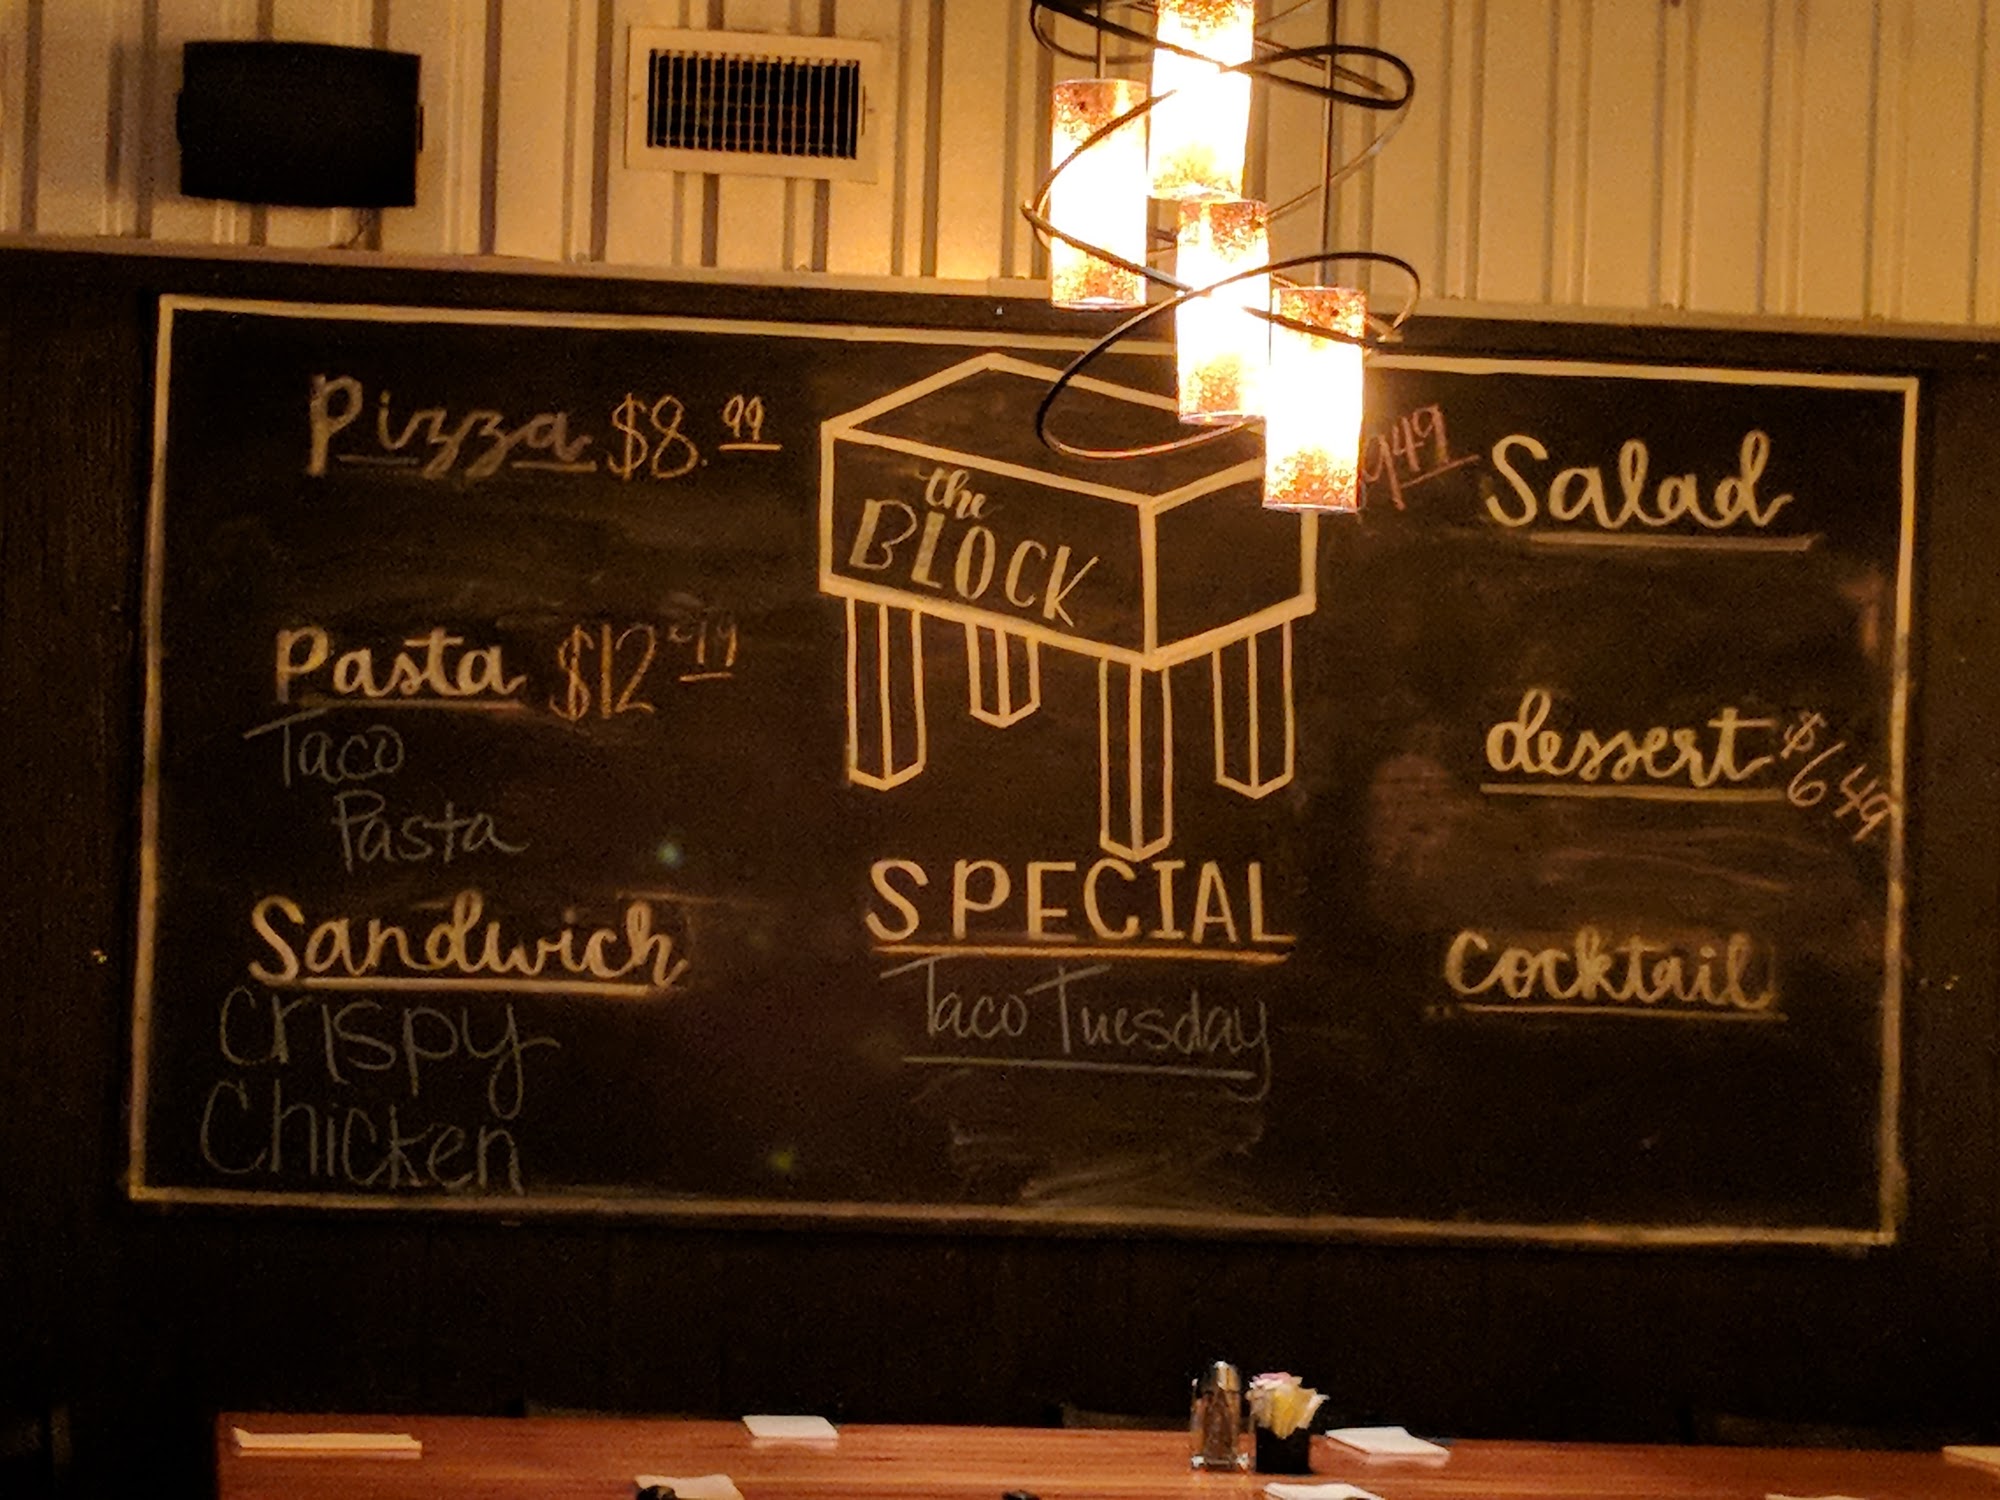 Pizza $8.99
Pasta $12.99
Taco
Pasta
Sandwich
Crispy
Chicken
the
BLOCK
SPECIAL
Taco Tuesday
949 Salad
dessert $6 49
cocktail